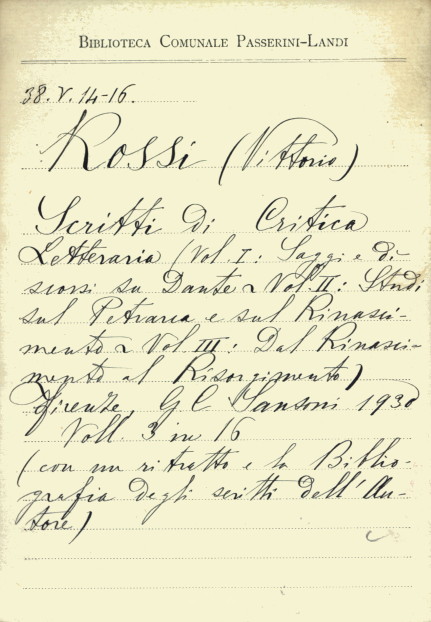 BIBLIOTECA COMUNALE PASSERINI-LANDI
38.V.14-16.
Rossi (Vittorio)
Scritti di Critica
Letteraria (Vol. I: Saggi e di-
scorsi su Dante - Vol. II: Studi
sul Petrarca e sul Rinasci-
mento - Vol III: Dal Rinasci-
mento al Risorgimento)
Firenze, G C. Sansoni 1930
Voll. 3 in 16
(con un ritratto e la Biblio-
grafia degli scritti dell'Au-
tore)